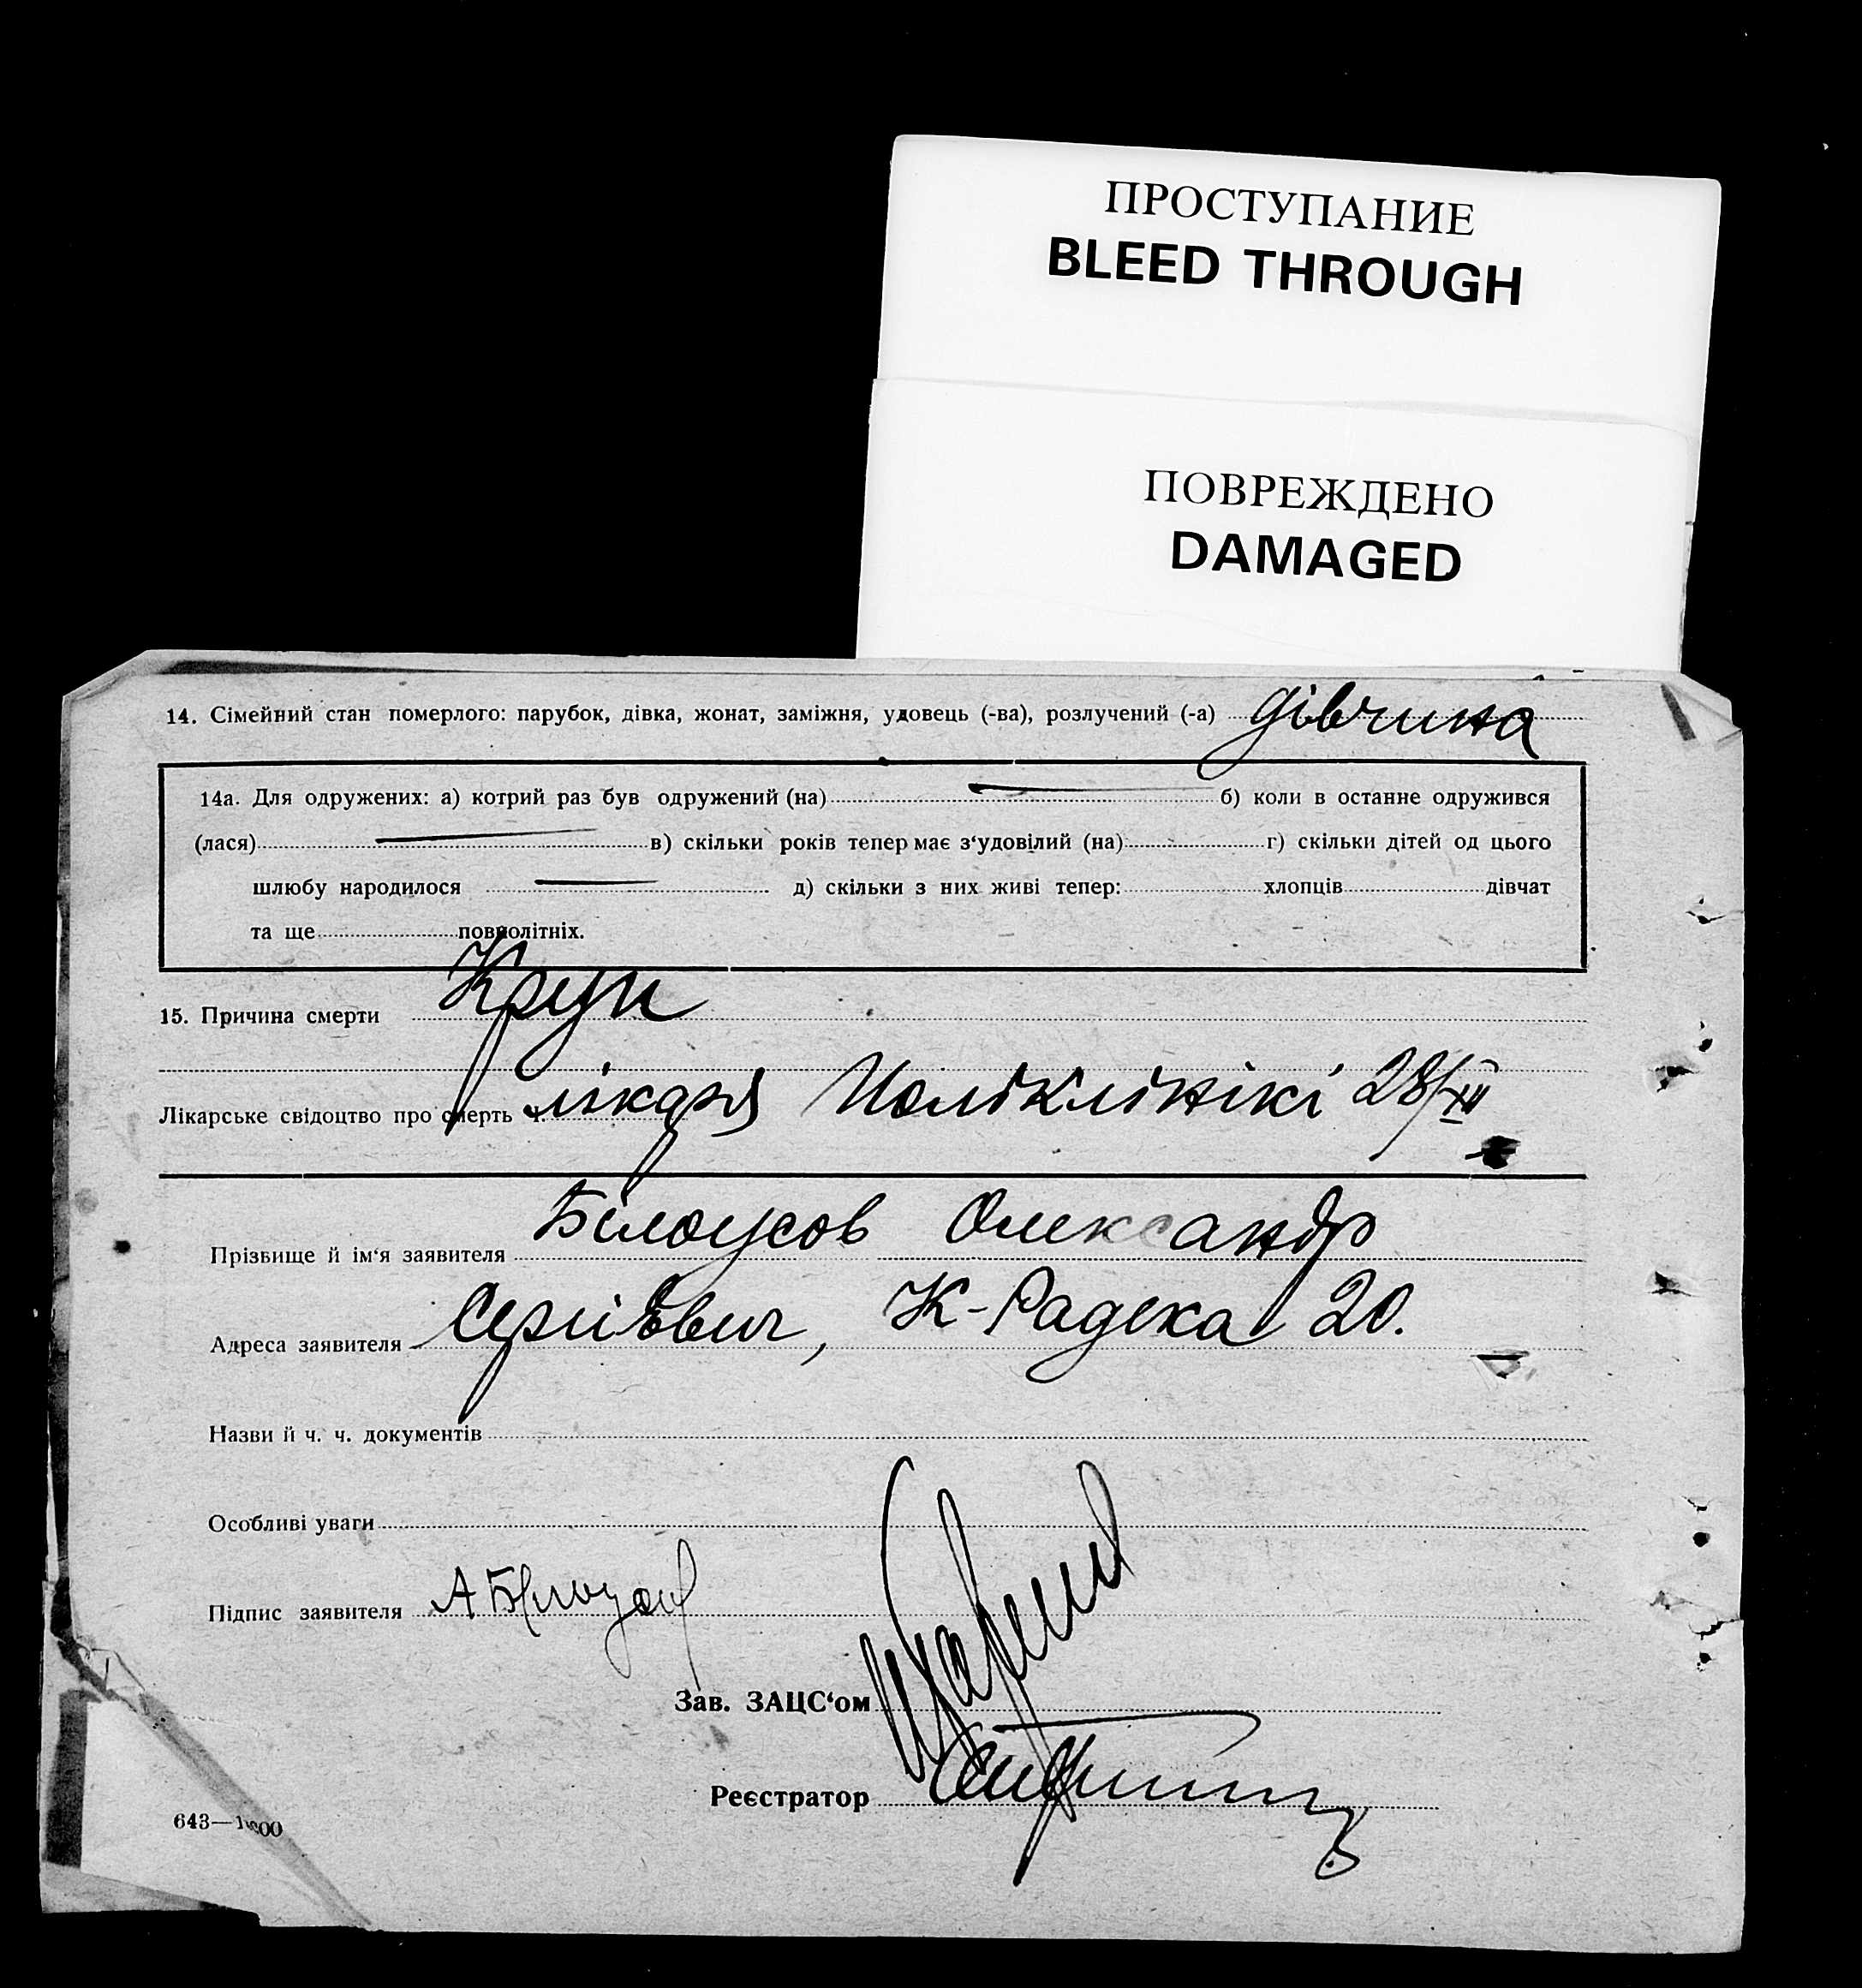 ПРОСТУПАНИЕ
BLEED THROUGH
ПОВРЕЖДЕНО
DAMAGED
14. Сімейний стан померлого: парубок, дівка, жонат, заміжня, удовець (-ва), розлучений (-а) дівчина
14а. Для одружених: а) котрий раз був одружений (на) б) коли в останне одружився
(лася) в) скільки років тепер має з‘удовілий (на) г) скільки дітей од цього
шлюбу народилося д) скільки з них живі тепер: хлопців дівчат
та ще повнолітніх.
15. Причина смерти Круп
Лікарське свідоцтво про смерть ч. лікаря Поліклінікі 28/XII
Прізвище й ім‘я заявителя Білоусов Олександр
Адреса заявителя Сергієвич, К-Радека 20.
Назви й ч. ч. документів
Особливі уваги
Підпис заявителя АБілоусов
Зав. ЗАЦС‘ом
Реєстратор
643—